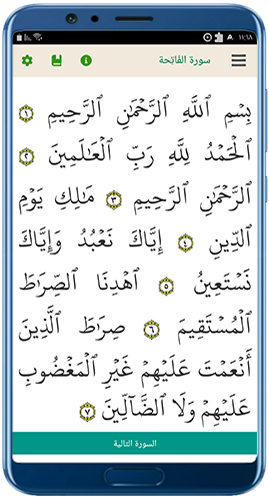 ١١:٦٨
سورة الفَاتِحة
بِسْمِ ٱللَّهِ ٱلرَّحْمَٰنِ ٱلرَّحِيمِ ١
ٱلْحَمْدُ لِلَّهِ رَبِّ ٱلْعَٰلَمِينَ ٢
ٱلرَّحْمَٰنِ ٱلرَّحِيمِ ٣ مَٰلِكِ يَوْمِ
ٱلدِّينِ ٤ إِيَّاكَ نَعْبُدُ وَإِيَّاكَ
نَسْتَعِينُ ٥ ٱهْدِنَا ٱلصِّرَٰطَ
ٱلْمُسْتَقِيمَ ٦ صِرَٰطَ ٱلَّذِينَ
أَنْعَمْتَ عَلَيْهِمْ غَيْرِ ٱلْمَغْضُوبِ
عَلَيْهِمْ وَلَا ٱلضَّآلِّينَ ٧
السورة التالية